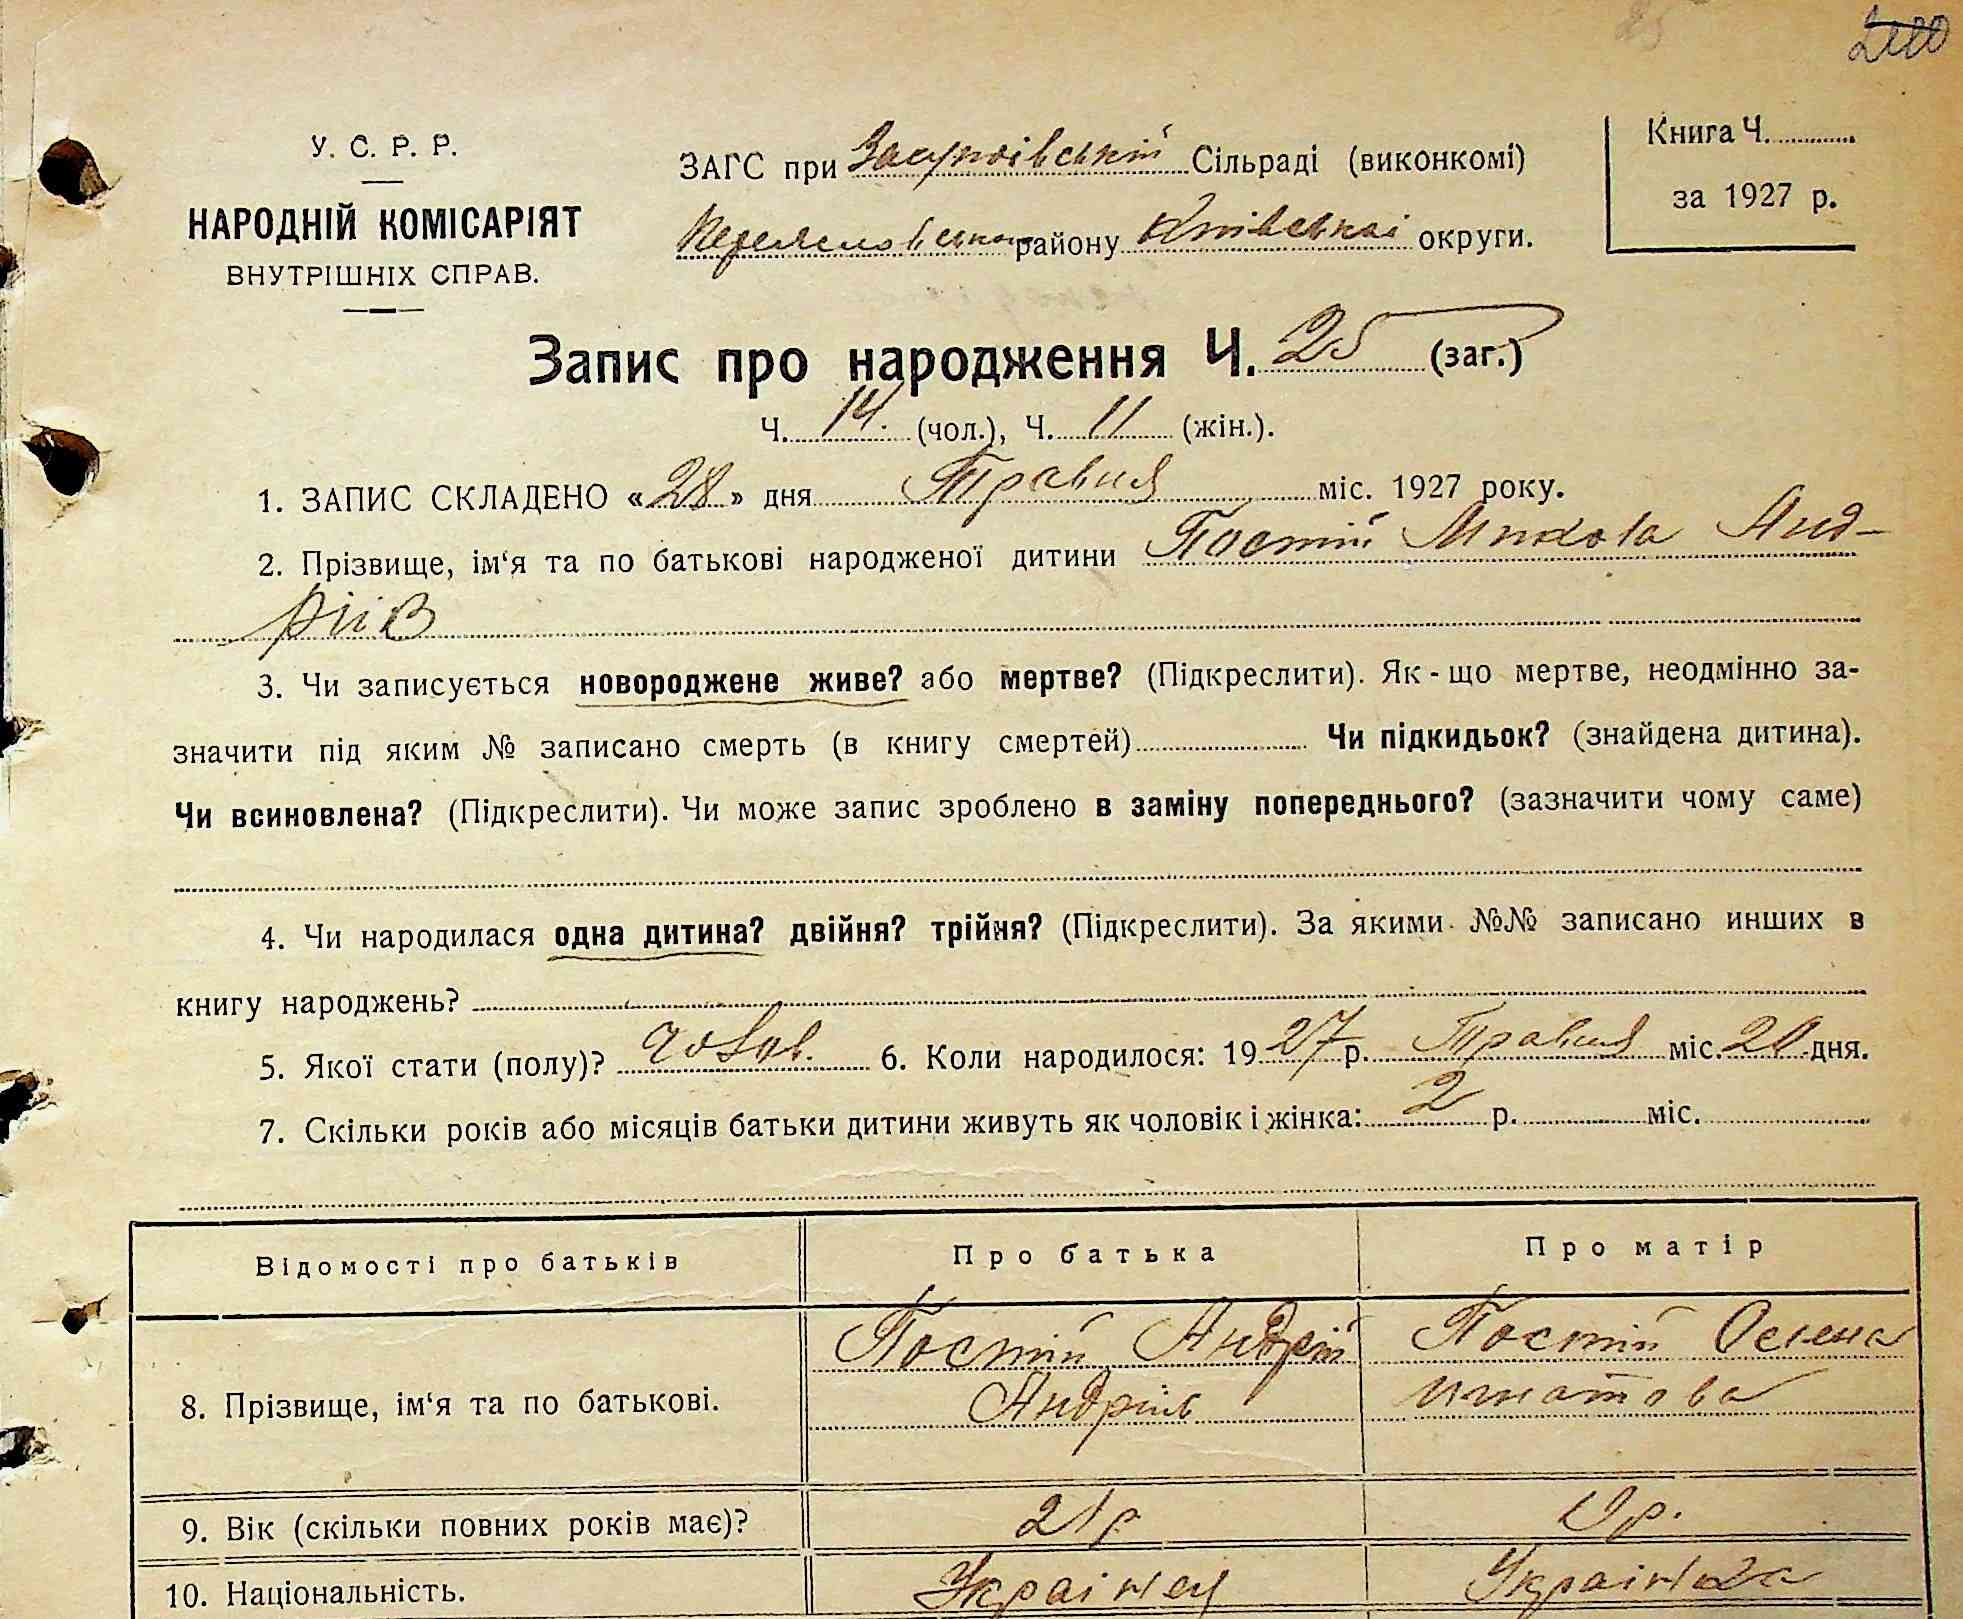 25
У. С. Р. Р.
НАРОДНІЙ КОМІСАРІЯТ
ВНУТРІШНІХ СПРАВ.
ЗАГС при Засупоївській Сільраді (виконкомі)
району Київської округи.
Книга Ч.
за 1927 р.
Запис про народження Ч. 25 (заг.)
Ч. 14. (чол.), Ч. 11 (жін.).
1. ЗАПИС СКЛАДЕНО «28» дня Травня міс. 1927 року.
2. Прізвище, ім‘я та по батькові народженої дитини Постій Микола Анд-
ріїв
3. Чи записується новороджене живе? або мертве? (Підкреслити). Як - що мертве, неодмінно за-
значити під яким № записано смерть (в книгу смертей) Чи підкидьок? (знайдена дитина).
Чи всиновлена? (Підкреслити). Чи може запис зроблено в заміну попереднього? (зазначити чому саме)
4. Чи народилася одна дитина? двійня? трійня? (Підкреслити). За якими №№ записано инших в
книгу народжень?
5. Якої стати (полу)? чолов. 6. Коли народилося: 19 27 р. Травня міс. 20 дня.
7. Скільки років або місяців батьки дитини живуть як чоловік і жінка: 2 р. міс.
Відомості про батьків Про батька Про матір
8. Прізвище, ім‘я та по батькові. Постій Андрій Постій Олена
Андріїв Игнатова
9. Вік (скільки повних років має)? 21 р р.
10. Національність. Українец Українка